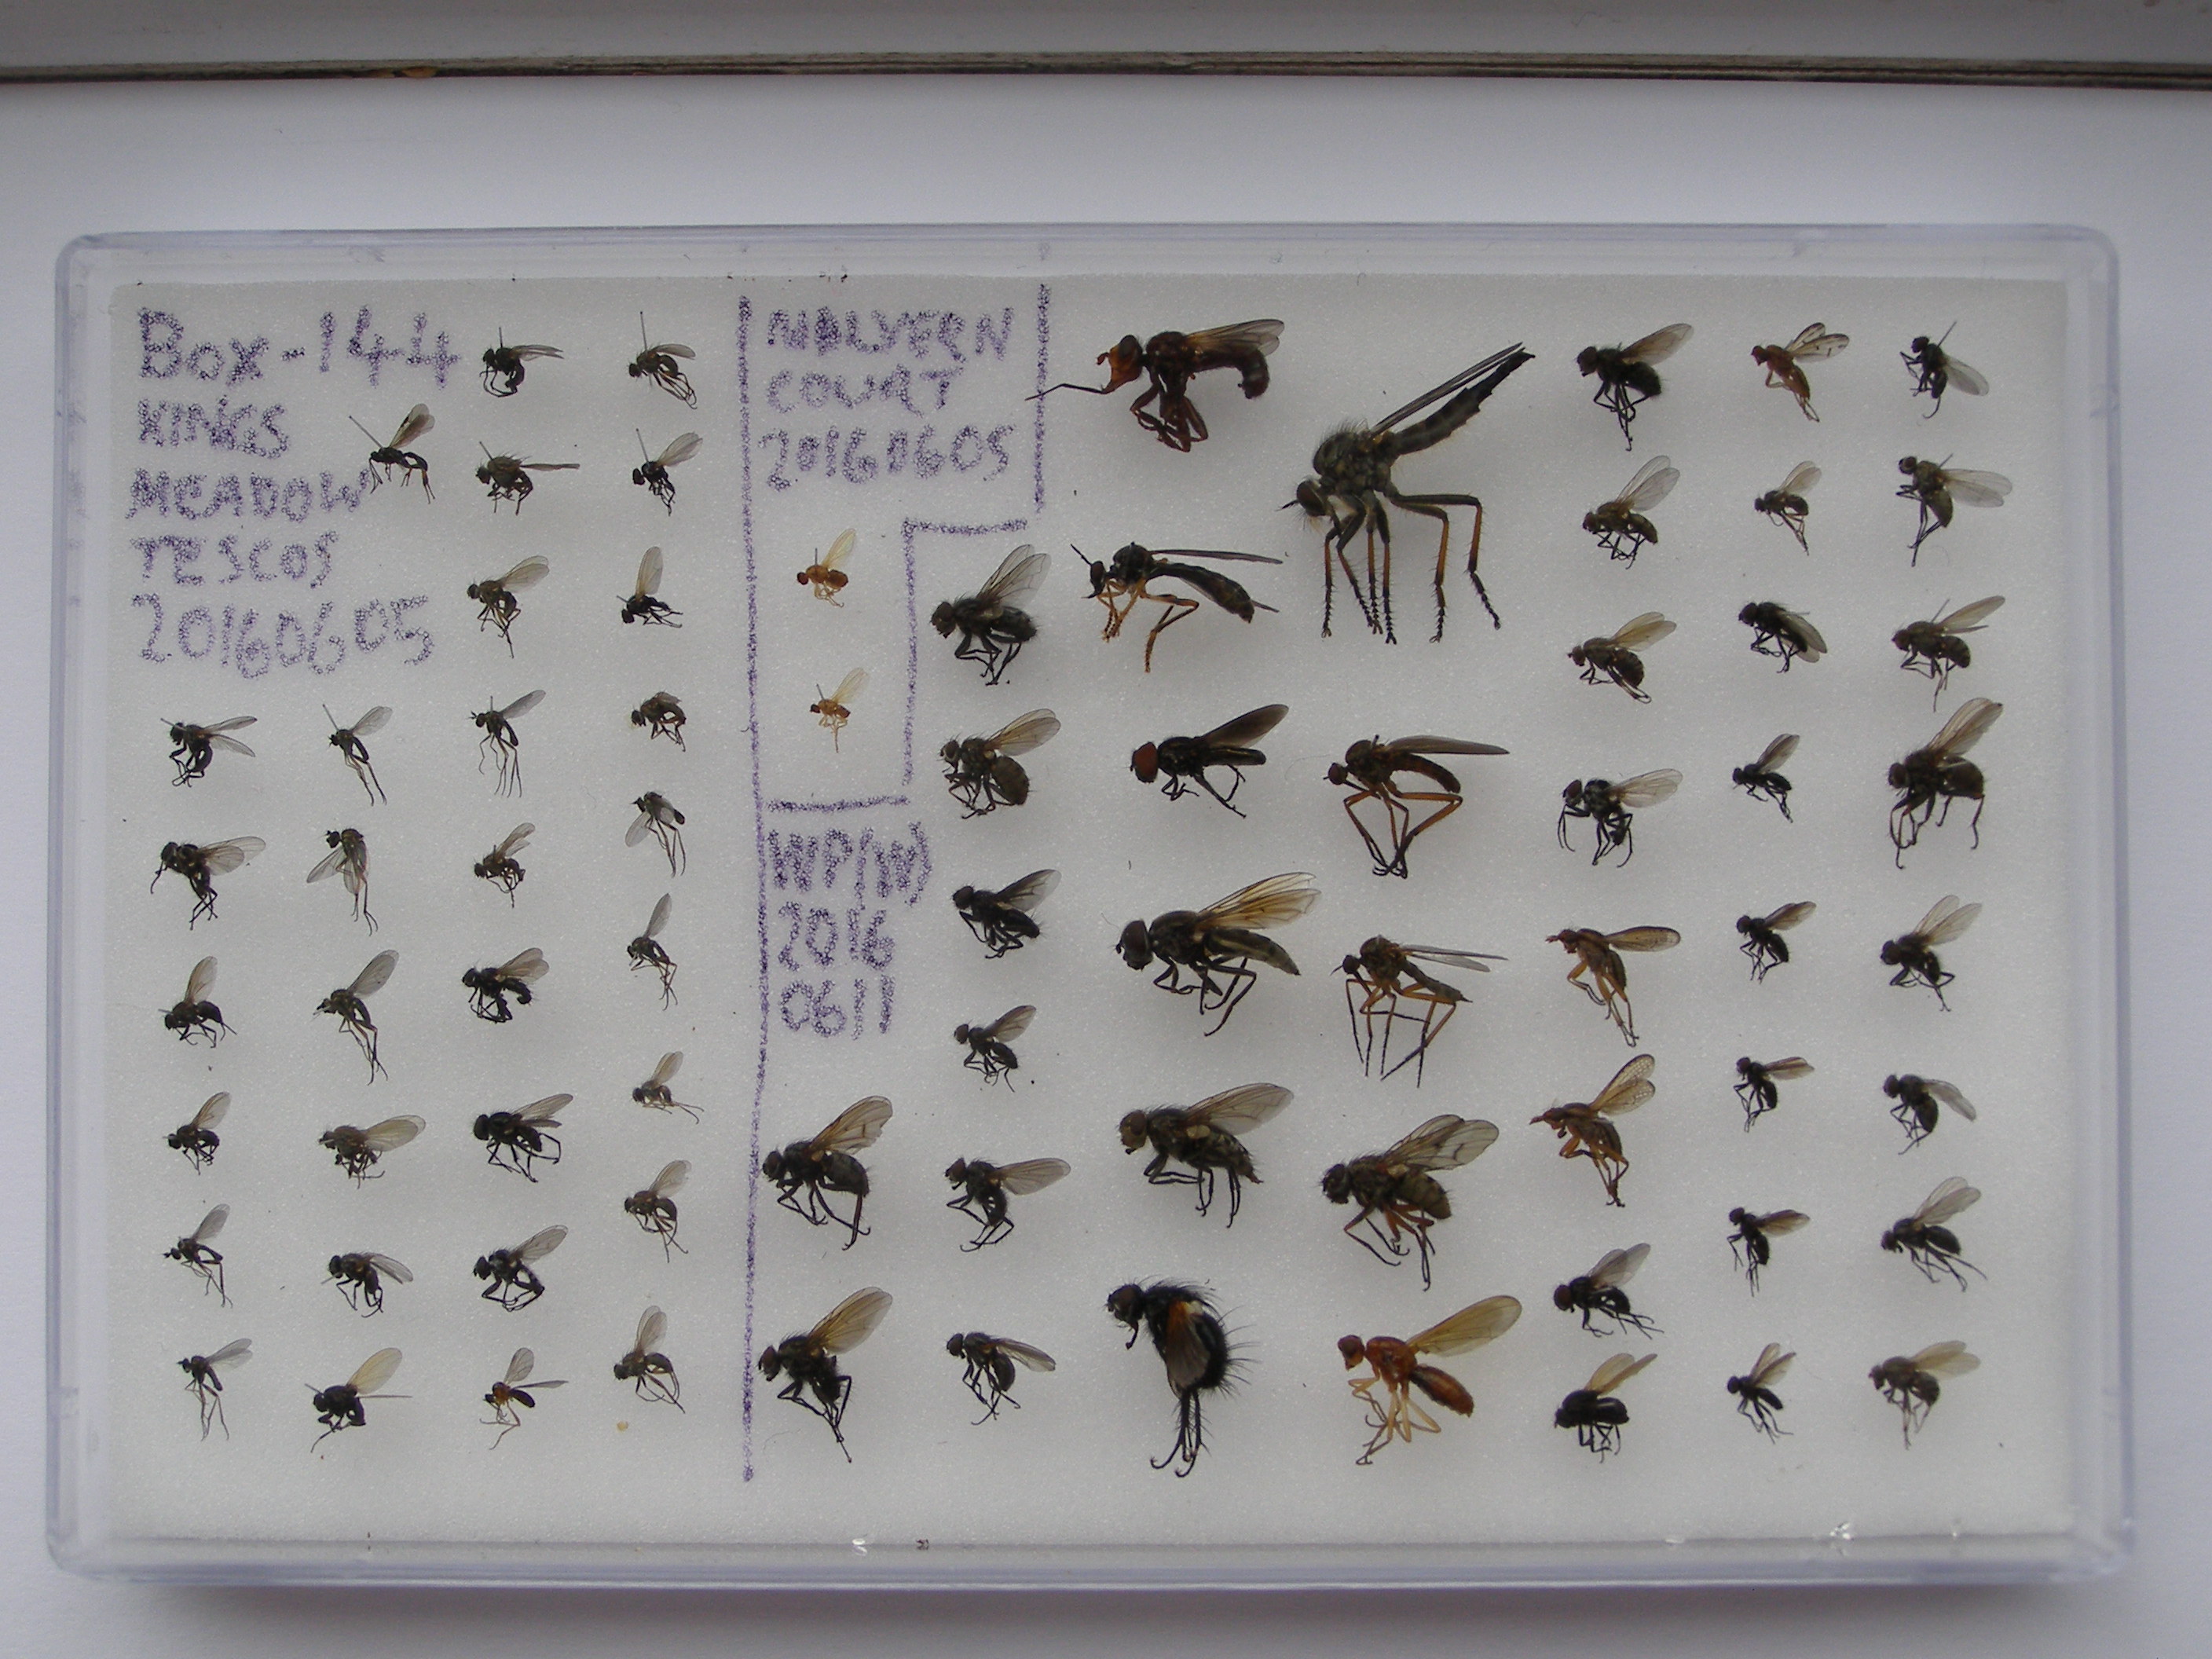 Box-144
KINGS
MEADOW
TESCOS
20160605
MALVERN
COURT
20160605
WP(W)
2016
0611